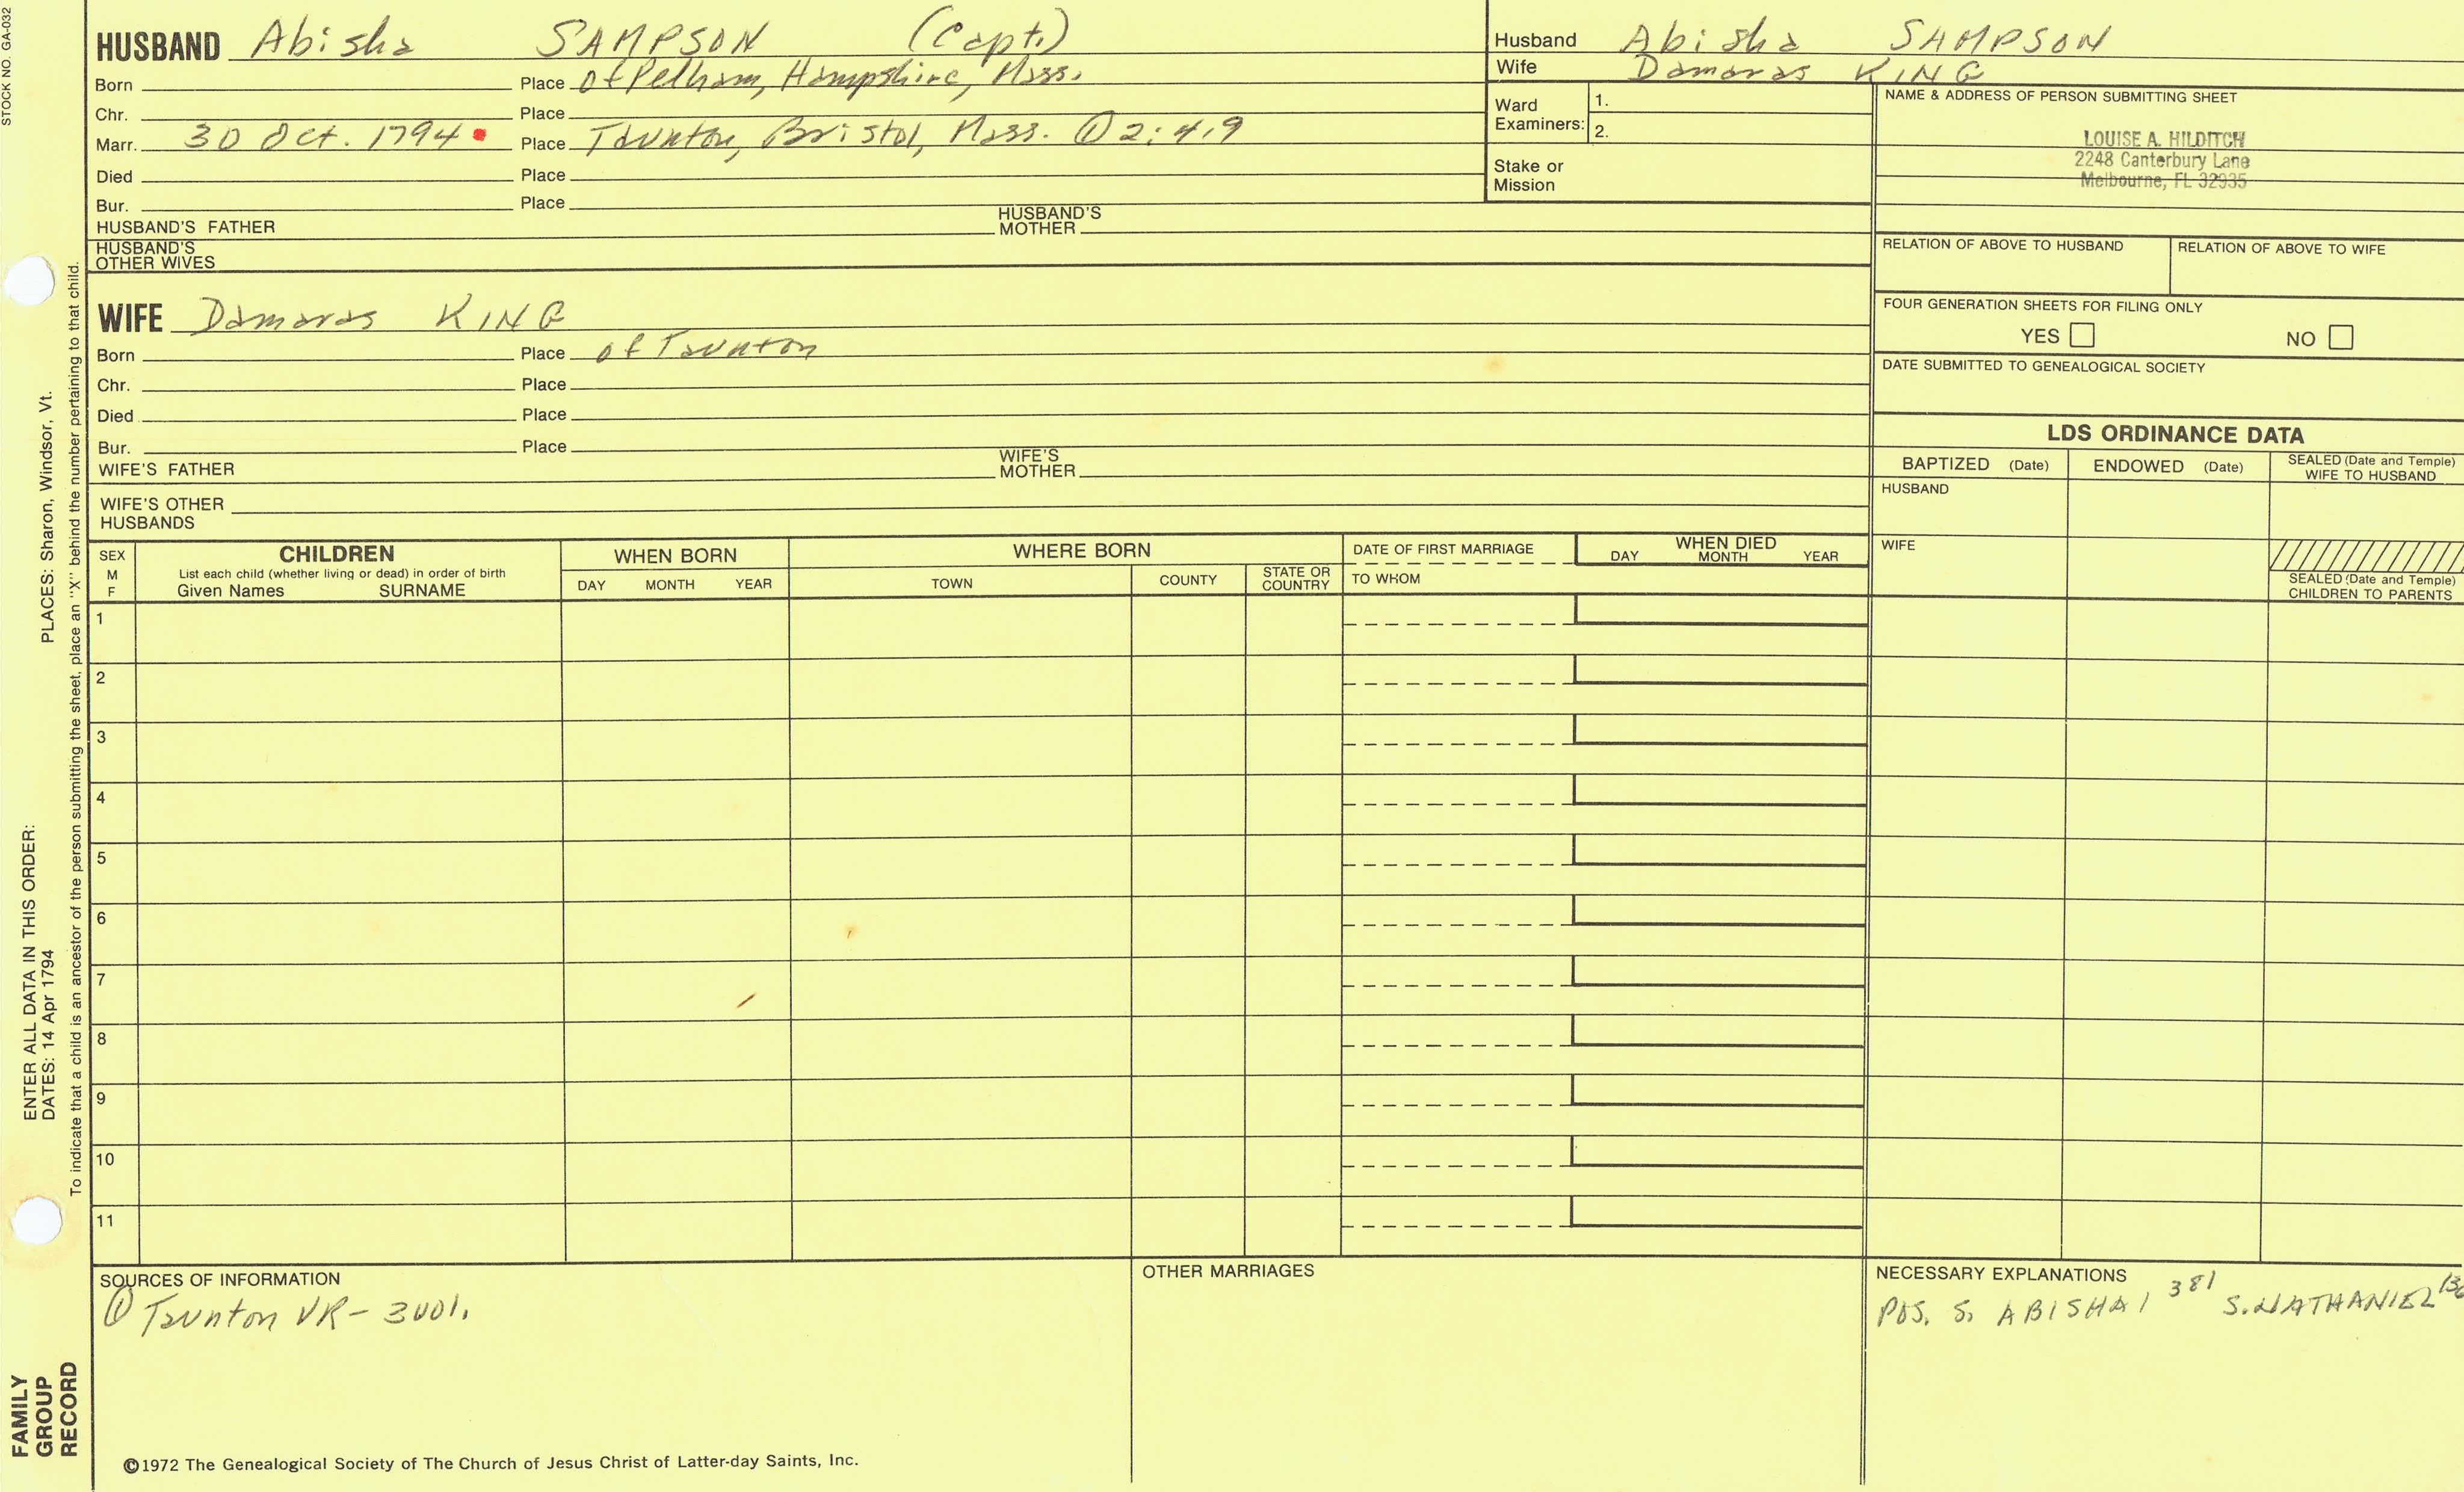 STOCK NO. GA-032
HUSBAND Abisha SAMPSON (Capt.)
Born Place of Pelham, Hampshire, Mass.
Chr. Place
Marr. 30 Oct. 1794 Place Taunton, Bristol, Mass. ① 2:419
Died Place
Bur. Place
HUSBAND'S FATHER HUSBAND'S MOTHER
HUSBAND'S OTHER WIVES
Husband Abisha SAMPSON
Wife Damaras KING
Ward Examiners: 1.
2.
Stake or Mission
NAME & ADDRESS OF PERSON SUBMITTING SHEET
LOUISE A. HILDITCH
2248 Canterbury Lane
Melbourne, FL 32935
RELATION OF ABOVE TO HUSBAND RELATION OF ABOVE TO WIFE
FOUR GENERATION SHEETS FOR FILING ONLY
YES NO
DATE SUBMITTED TO GENEALOGICAL SOCIETY
WIFE Damaras KING
Born Place of Taunton
Chr. Place
Died Place
Bur. Place
WIFE'S FATHER WIFE'S MOTHER
WIFE'S OTHER HUSBANDS
LDS ORDINANCE DATA
BAPTIZED (Date) ENDOWED (Date) SEALED (Date and Temple) WIFE TO HUSBAND
HUSBAND
WIFE
SEALED (Date and Temple) CHILDREN TO PARENTS
SEX M F
CHILDREN
List each child (whether living or dead) in order of birth
Given Names SURNAME
WHEN BORN
DAY MONTH YEAR
WHERE BORN
TOWN COUNTY STATE OR COUNTRY
DATE OF FIRST MARRIAGE
TO WHOM
WHEN DIED
DAY MONTH YEAR
1
2
3
4
5
6
7
8
9
10
11
SOURCES OF INFORMATION
① Taunton VR- 3 vol.
OTHER MARRIAGES
NECESSARY EXPLANATIONS
POS. S. ABISHAI 381 S. NATHANIEL
©1972 The Genealogical Society of The Church of Jesus Christ of Latter-day Saints, Inc.
FAMILY
GROUP
RECORD
ENTER ALL DATA IN THIS ORDER:
DATES: 14 Apr 1794 PLACES: Sharon, Windsor, Vt.
To indicate that a child is an ancestor of the person submitting the sheet, place an "X" behind the number pertaining to that child.